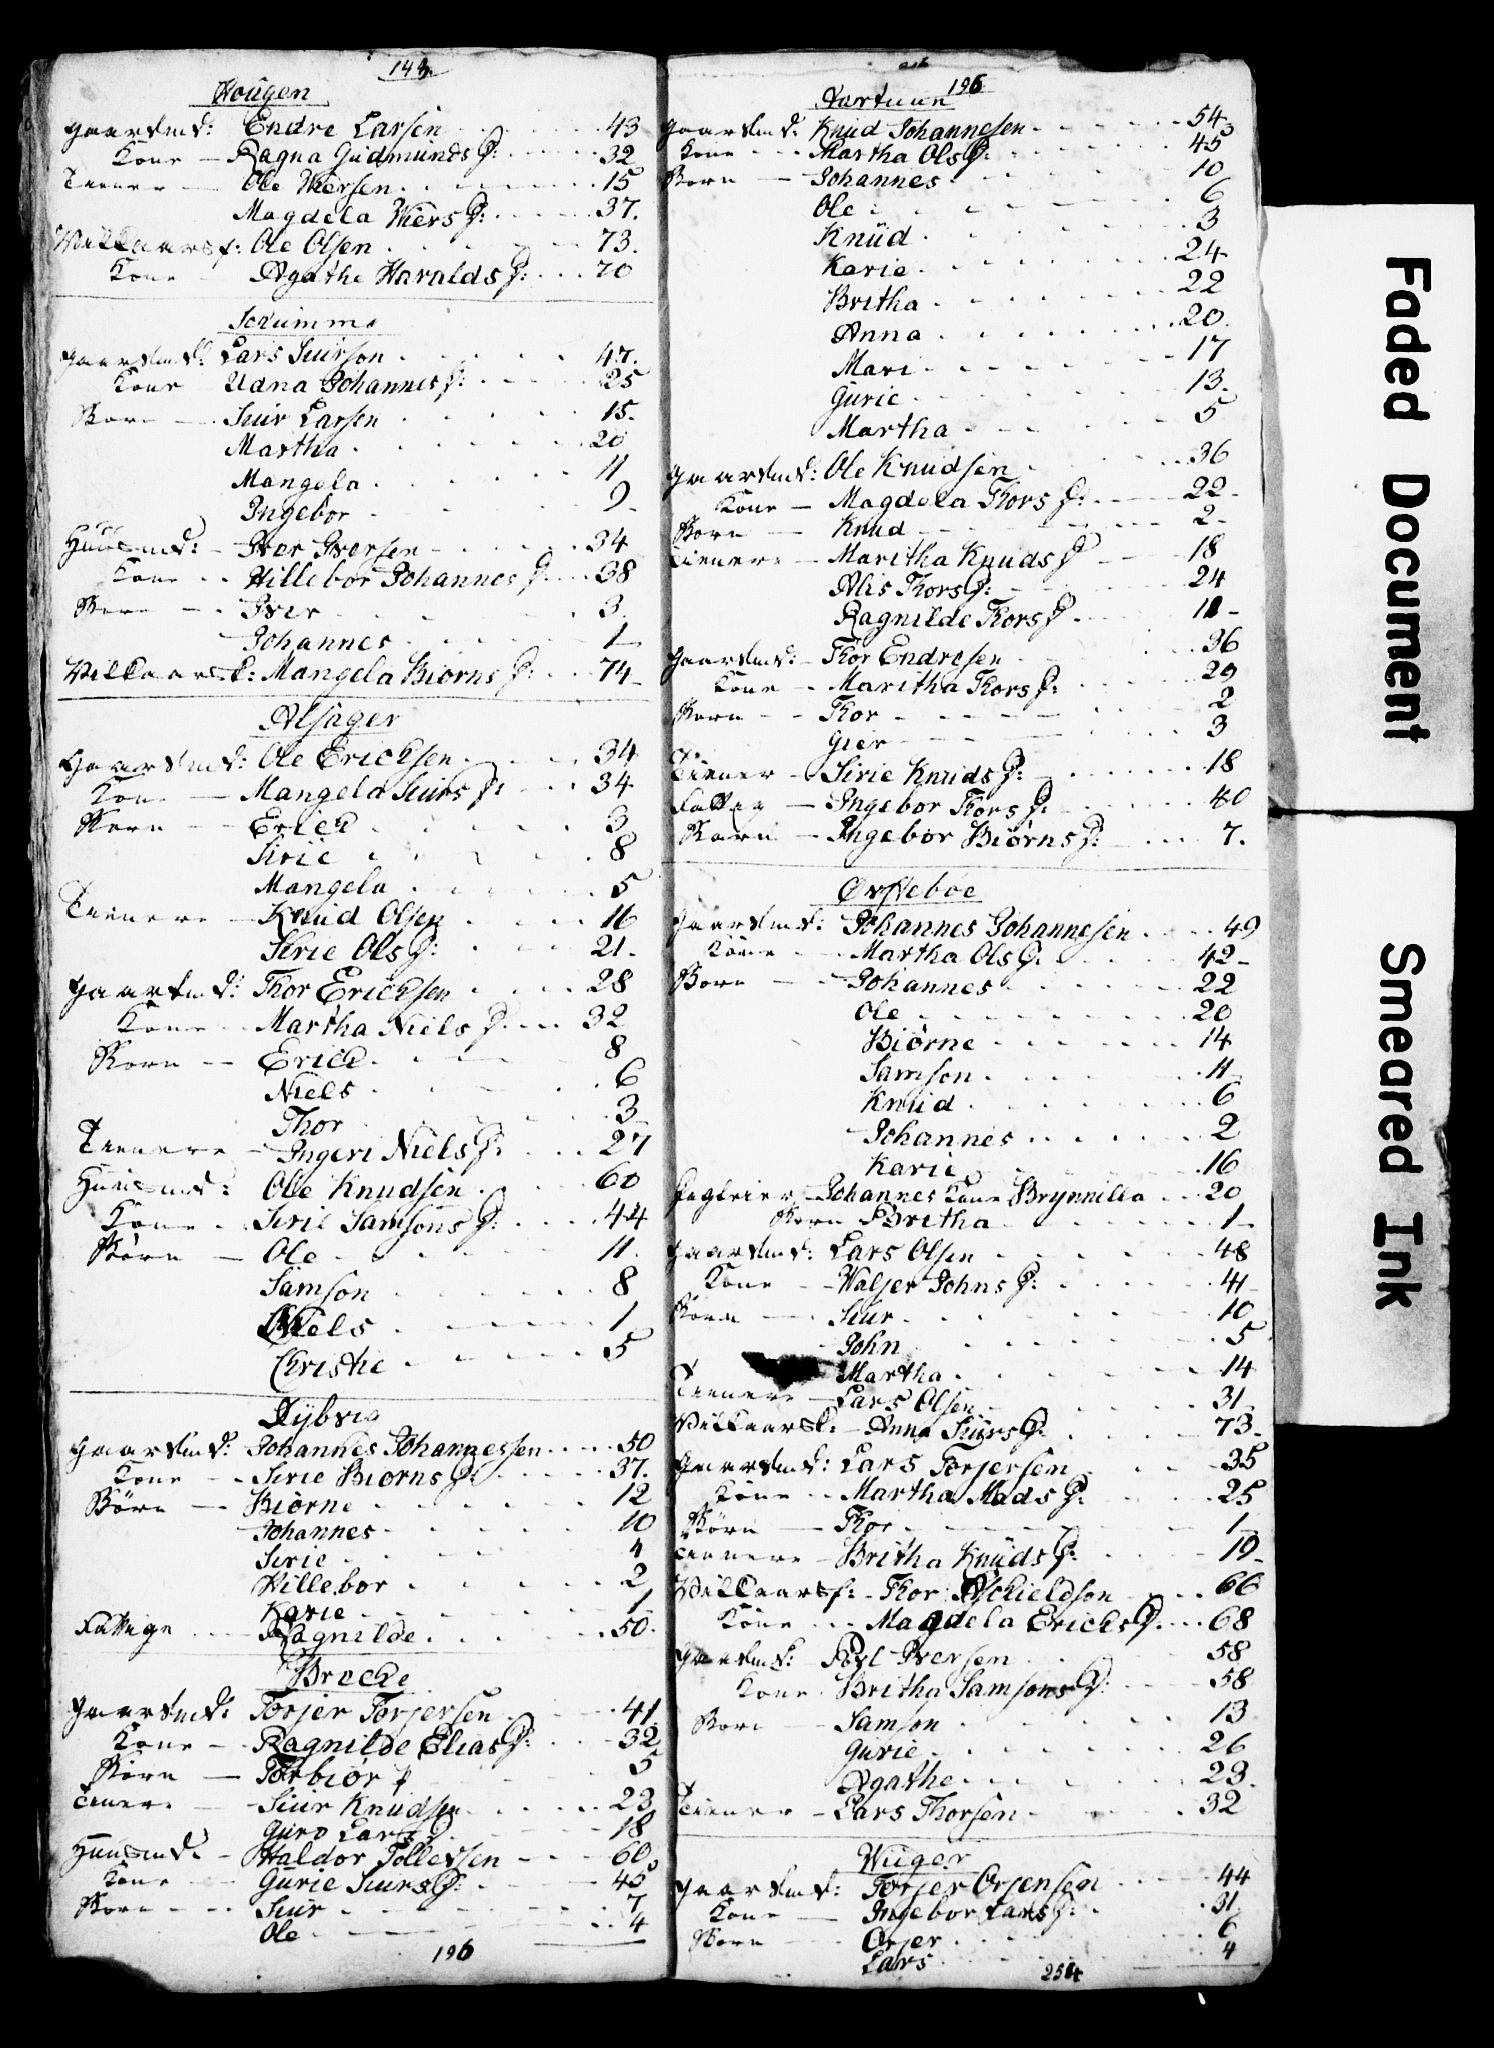 144
Hougen
Gaardmd: Endre Larsen 43
Kone Ragna Gudmunds D: 32
Tienere Ole Wiersen 15
Magdela Wiers D: 37.
Vilkaarsf: Ole Olsen 73.
Kone Agathe Haralds D: 70
Scrumme
Gaardmd: Lars Siurson 47.
Kone Udna Johannes D: 25
Børn Siur Larsen 15.
Martha 20
Mangela 11
Ingebor 9
Huusmd: Iver Iversen 34
Kone Willebor Johannes D. 38
Børn Iver 3.
Johannes 1
Vilkaarsk: Mangela Biorns D: 74
Alsager
Gaardmd: Ole Ericksen 34
Kone Mangela Siurs D: 34
Børn Erick 3
Sirie 8
Mangela 5
Tienere Knud Olsen 16
Sirie Ols D: 21.
Gaardmd: Thor Ericksen 28
Kone Martha Niels D. 32
Børn Erick 8
Niels 6
Thor 3
Tienere Ingeri Niels D: 27
Huusmd: Ole Knudsen 60
Kone Sirie Samsons D: 44
Børn Ole 11.
Samson 8
Niels 1
Christie 5
Dybvig
Gaardmd: Johannes Johannessen 50
Kone Sirie Biorns D: 37.
Børn Biorne 12
Johannes 10
Sirie 4
Willebor 2
Karie 1
Fattige Ragnilde 50.
Brecke
Gaardmd: Torjer Torjersen 41
Kone Ragnilde Elias D: 32
Børn Torbiør 5
Tienere Siur Knudsen 23
Guro Lars D. 18
Huusmd. Haldor Tollevsen 60
Kone Gurie Siurs D: 45
Børn Siur 7
Ole 4
196
196
Aartuun
Gaardmd: Knud Johannesen 54
Kone Martha Ols D: 45
Børn Johannes 10
Ole 6
Knud 3
Karie 24
Britha 22
Anna 20.
Mari 17
Gurie 13.
Martha 5
Gaardmd: Ole Knudsen 36
Kone Magdela Thors D: 22
Børn Knud 2
Tienere Maritha Knuds D 18
Alis Thors D: 24
Ragnilde Thors D 11
Gaardmd: Thor Endresen 36
Kone Maritha Thors D: 29
Børn Thor 2
Gier 3
Tiener Sirie Knuds D: 18
Fattig Ingebor Thors D: 40
Børn Ingebor Biørns D: 7.
Ørstebøe
Gaardmd: Johannes Johannesen 49
Kone Martha Ols D: 42
Børn Johannes 22
Ole 20
Biørne 14
Samson 11
Knud 6
Johannes 2
Karie 16
Johannes Kone Brynnilla 20
Børn Britha 1
Gaardmd: Lars Olsen 48
Kone Waljer Johns D: 41
Børn Siur 10
John 5
Martha 14
Tienere Lars Olsen 31
Vilkaarsk: Anna Siurs D: 73.
Gaardmd: Lars Torjersen 35
Kone Martha Mads D: 25
Børn Thor 1
Tienere Britha Knuds D: 19
Vilkaarsf: Thor Aschieldson 66
Kone Magdela Ericks D. 68
Gaardmd: Povl Iversen 58
Kone Britha Samsons D: 58
Børn Samson 13
Gurie 26
Agathe 23.
Tiener Lars Thorsen 32
Wiiger
Gaardmd: Torjer Orjensen 44
Kone Ingebor Lars D: 31
Børn Orjer 6
Lars 4
254
Faded Document
Smeared Ink